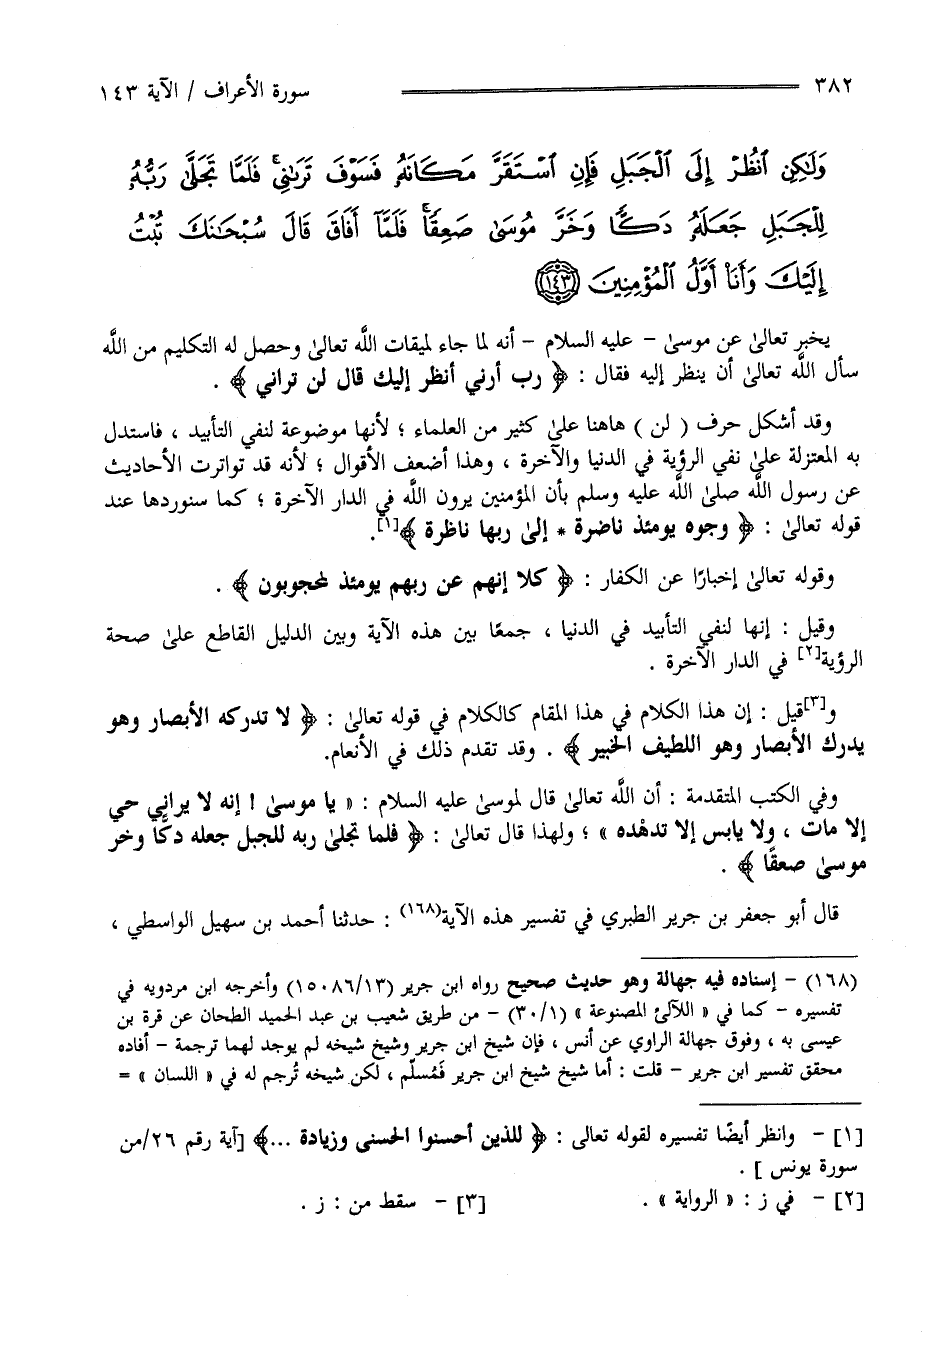 ٣٨٢ سورة الأعراف / الآية ١٤٣
وَلَٰكِنِ ٱنظُرْ إِلَى ٱلْجَبَلِ فَإِنِ ٱسْتَقَرَّ مَكَانَهُۥ فَسَوْفَ تَرَىٰنِى ۚ فَلَمَّا تَجَلَّىٰ رَبُّهُۥ
لِلْجَبَلِ جَعَلَهُۥ دَكًّا وَخَرَّ مُوسَىٰ صَعِقًا ۚ فَلَمَّآ أَفَاقَ قَالَ سُبْحَٰنَكَ تُبْتُ
إِلَيْكَ وَأَنَا۠ أَوَّلُ ٱلْمُؤْمِنِينَ ١٤٣
يخبر تعالىٰ عن موسىٰ - عليه السلام - أنه لما جاء لميقات اللَّه تعالىٰ وحصل له التكليم من اللَّه
سأل اللَّه تعالىٰ أن ينظر إليه فقال : ﴿ رب أرني أنظر إليك قال لن تراني ﴾ .
وقد أشكل حرف ( لن ) هاهنا علىٰ كثير من العلماء ؛ لأنها موضوعة لنفي التأبيد ، فاستدل
به المعتزلة علىٰ نفي الرؤية في الدنيا والآخرة ، وهذا أضعف الأقوال ؛ لأنه قد تواترت الأحاديث
عن رسول اللَّه صلىٰ اللَّه عليه وسلم بأن المؤمنين يرون اللَّه في الدار الآخرة ؛ كما سنوردها عند
قوله تعالىٰ : ﴿ وجوه يومئذ ناضرة * إلىٰ ربها ناظرة ﴾[١].
وقوله تعالىٰ إخبارًا عن الكفار : ﴿ كلا إنهم عن ربهم يومئذ لمحجوبون ﴾ .
وقيل : إنها لنفي التأبيد في الدنيا ، جمعًا بين هذه الآية وبين الدليل القاطع علىٰ صحة
الرؤية[٢] في الدار الآخرة .
و[٣]قيل : إن هذا الكلام في هذا المقام كالكلام في قوله تعالىٰ : ﴿ لا تدركه الأبصار وهو
يدرك الأبصار وهو اللطيف الخبير ﴾ . وقد تقدم ذلك في الأنعام.
وفي الكتب المتقدمة : أن اللَّه تعالىٰ قال لموسىٰ عليه السلام : « يا موسىٰ ! إنه لا يراني حي
إلا مات ، ولا يابس إلا تدهده » ؛ ولهذا قال تعالىٰ : ﴿ فلما تجلىٰ ربه للجبل جعله دكًّا وخر
موسىٰ صعقًا ﴾ .
قال أبو جعفر بن جرير الطبري في تفسير هذه الآية(١٦٨) : حدثنا أحمد بن سهيل الواسطي ،
(١٦٨) - إسناده فيه جهالة وهو حديث صحيح رواه ابن جرير (١٥٠٨٦/١٣) وأخرجه ابن مردويه في
تفسيره - كما في « اللآلئ المصنوعة » (٣٠/١) - من طريق شعيب بن عبد الحميد الطحان عن قرة بن
عيسى به ، وفوق جهالة الراوي عن أنس ، فإن شيخ ابن جرير وشيخ شيخه لم يوجد لهما ترجمة - أفاده
محقق تفسير ابن جرير - قلت : أما شيخ شيخ ابن جرير فَمُسلّم ، لكن شيخه تُرجم له في « اللسان » =
[١] - وانظر أيضًا تفسيره لقوله تعالى : ﴿ للذين أحسنوا الحسنى وزيادة ...﴾ [آية رقم ٢٦/من
سورة يونس ] .
[٢] - في ز : « الرواية » . [٣] - سقط من : ز .